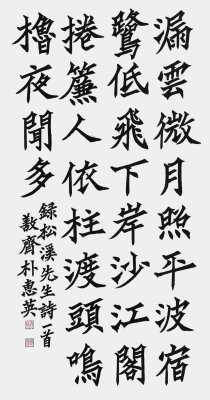 漏雲微月照平波宿
鷺低飛下岸沙江閣
捲簾人依柱渡頭鳴
櫓夜聞多
錄松溪先生詩一首
齊朴惠英